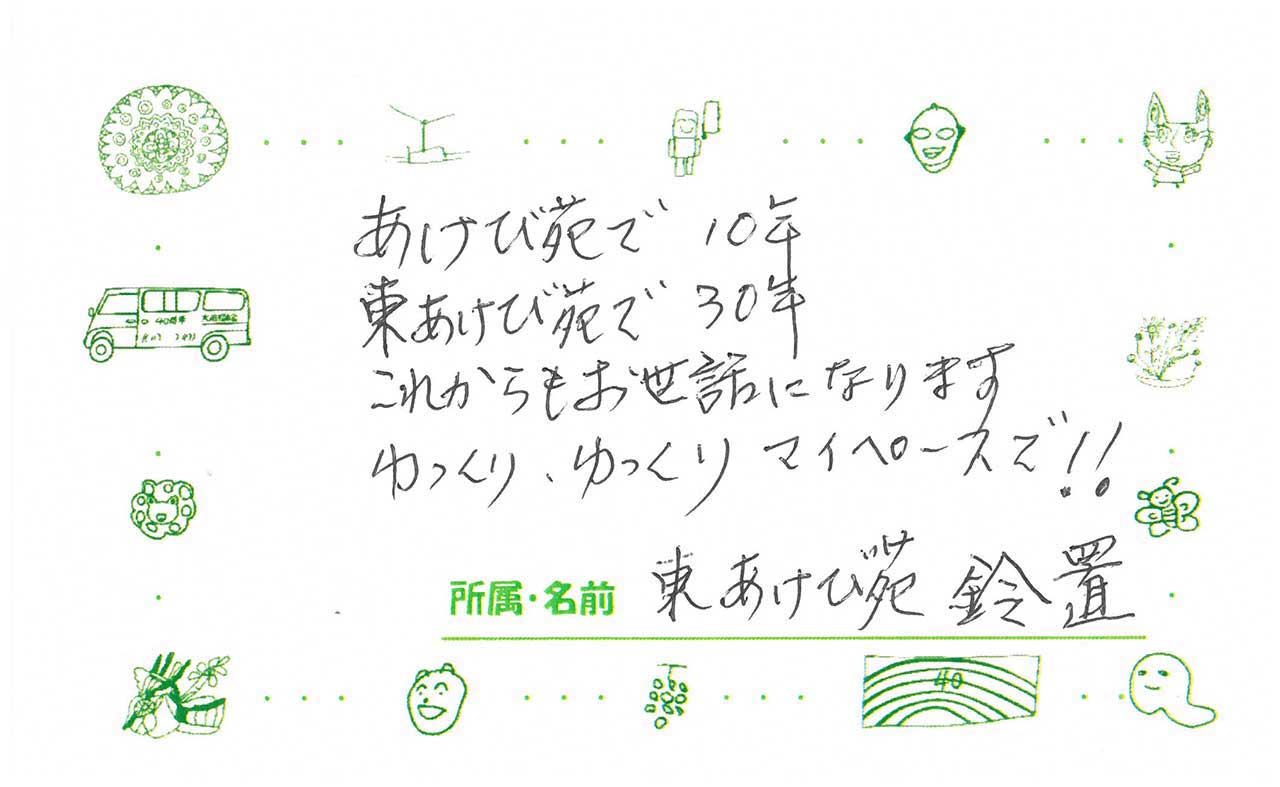 あけび苑で 10年
東あけび苑で 30年
これからもお世話になります
ゆっくり、ゆっくり マイペースで!!
所属・名前 東あけび苑 鈴置
40周年
40